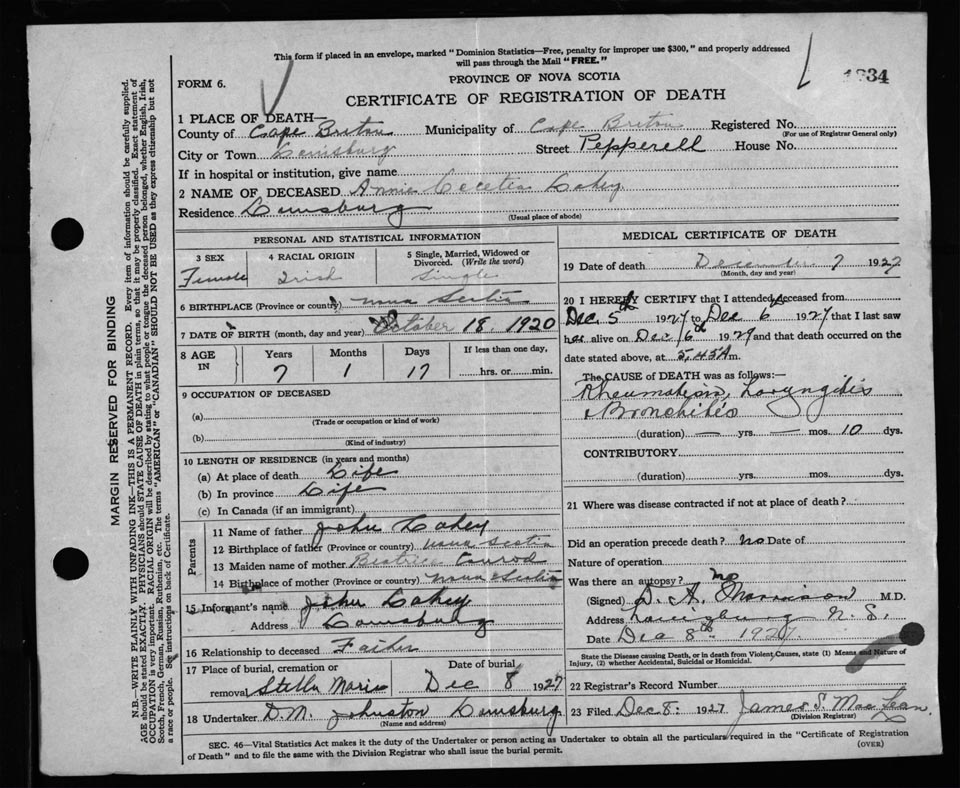 This form if placed in an envelope, marked "Dominion Statistics—Free, penalty for improper use $300," and properly addressed
will pass through the Mail "FREE."
FORM 6.
PROVINCE OF NOVA SCOTIA
1834
CERTIFICATE OF REGISTRATION OF DEATH
1 PLACE OF DEATH—
County of Cape Breton Municipality of Cape Breton Registered No.
(For use of Registrar General only)
City or Town Louisburg Street Pepperell House No.
If in hospital or institution, give name
2 NAME OF DECEASED Annie Cecelia Lahey
Residence Louisburg
(Usual place of abode)
PERSONAL AND STATISTICAL INFORMATION
3 SEX 4 RACIAL ORIGIN 5 Single, Married, Widowed or
Divorced. (Write the word)
Female Irish Single
6 BIRTHPLACE (Province or country) Nova Scotia
7 DATE OF BIRTH (month, day and year) October 18, 1920
8 AGE IN Years Months Days If less than one day,
7 1 17 hrs. or min.
9 OCCUPATION OF DECEASED
(a)
(Trade or occupation or kind of work)
(b)
(Kind of industry)
10 LENGTH OF RESIDENCE (in years and months)
(a) At place of death Life
(b) In province Life
(c) In Canada (if an immigrant)
Parents
11 Name of father John Lahey
12 Birthplace of father (Province or country) Nova Scotia
13 Maiden name of mother Beatrice Conrod
14 Birthplace of mother (Province or country) Nova Scotia
15 Informant's name John Lahey
Address Louisburg
16 Relationship to deceased Father
17 Place of burial, cremation or Date of burial
removal Stella Maris Dec 8 1927
18 Undertaker D.M. Johnston Louisburg
(Name and address)
MEDICAL CERTIFICATE OF DEATH
19 Date of death December 7 1927
(Month, day and year)
20 I HEREBY CERTIFY that I attended deceased from
Dec. 5th 1927 to Dec 6th 1927 that I last saw
her alive on Dec 6th 1927 and that death occurred on the
date stated above, at 5,45 A m.
The CAUSE OF DEATH was as follows:—
Rheumatism, Laryngitis
& Bronchitis
(duration) — yrs. — mos. 10 dys.
CONTRIBUTORY
(duration) yrs. mos. dys.
21 Where was disease contracted if not at place of death?
Did an operation precede death? no Date of
Nature of operation
Was there an autopsy? no
(Signed) D. A. Morrison M.D.
Address Louisburg N.S.
Date Dec 8th 1927.
State the Disease causing Death, or in death from Violent Causes, state (1) Means and Nature of
Injury, (2) whether Accidental, Suicidal or Homicidal.
22 Registrar's Record Number
23 Filed Dec 8: 1927. James S. MacLean.
(Division Registrar)
SEC. 46—Vital Statistics Act makes it the duty of the Undertaker or person acting as Undertaker to obtain all the particulars required in the "Certificate of Registration
of Death" and to file the same with the Division Registrar who shall issue the burial permit.
(OVER)
MARGIN RESERVED FOR BINDING
N.B.—WRITE PLAINLY WITH UNFADING INK—THIS IS A PERMANENT RECORD. Every item of information should be carefully supplied.
AGE should be stated EXACTLY. PHYSICIANS should STATE CAUSE OF DEATH in plain terms, so that it may be properly classified. Exact statement of
OCCUPATION is very important. RACIAL ORIGIN will be described by stating to what people or tongue the deceased person belonged, whether English, Irish,
Scotch, French, German, Russian, Ruthenian, etc. The terms "AMERICAN" or "CANADIAN" SHOULD NOT BE USED as they express citizenship but not
a race or people. See instructions on back of Certificate.